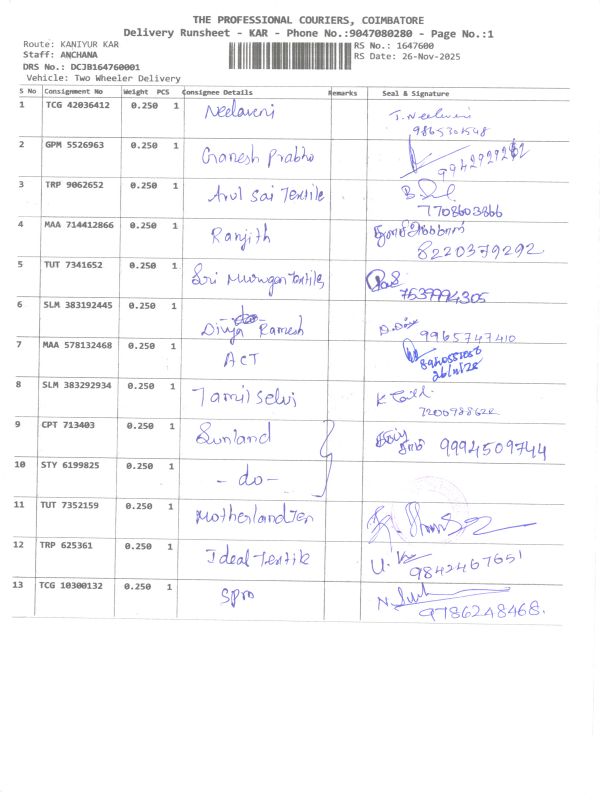 THE PROFESSIONAL COURIERS, COIMBATORE
Delivery Runsheet - KAR - Phone No.:9047080280 - Page No.:1
Route: KANIYUR KAR
RS No.: 1647600
Staff: ANCHANA
RS Date: 26-Nov-2025
DRS No.: DCJB164760001
Vehicle: Two Wheeler Delivery
S No Consignment No Weight PCS Consignee Details Remarks Seal & Signature
1 TCG 42036412 0.250 1 Neelaveni J. Neelaveni
9865301548
2 GPM 5526963 0.250 1 Ganesh Prabhu
3 TRP 9062652 0.250 1 Arul Sai Textile
7708603866
4 MAA 714412866 0.250 1 Ranjith
8220379292
5 TUT 7341652 0.250 1 Sri Murugan Textiles
7639994305
6 SLM 383192445 0.250 1 Divya Ramesh
9965747410
7 MAA 578132468 0.250 1 ACT
26/11/25
8 SLM 383292934 0.250 1 Tamil Selvi
7200988622
9 CPT 713403 0.250 1 Sunland
9994509744
10 STY 6199825 0.250 1 - do -
11 TUT 7352159 0.250 1 Motherland Tex
12 TRP 625361 0.250 1 Ideal Textile
9842467651
13 TCG 10300132 0.250 1 Spm
9786248468.